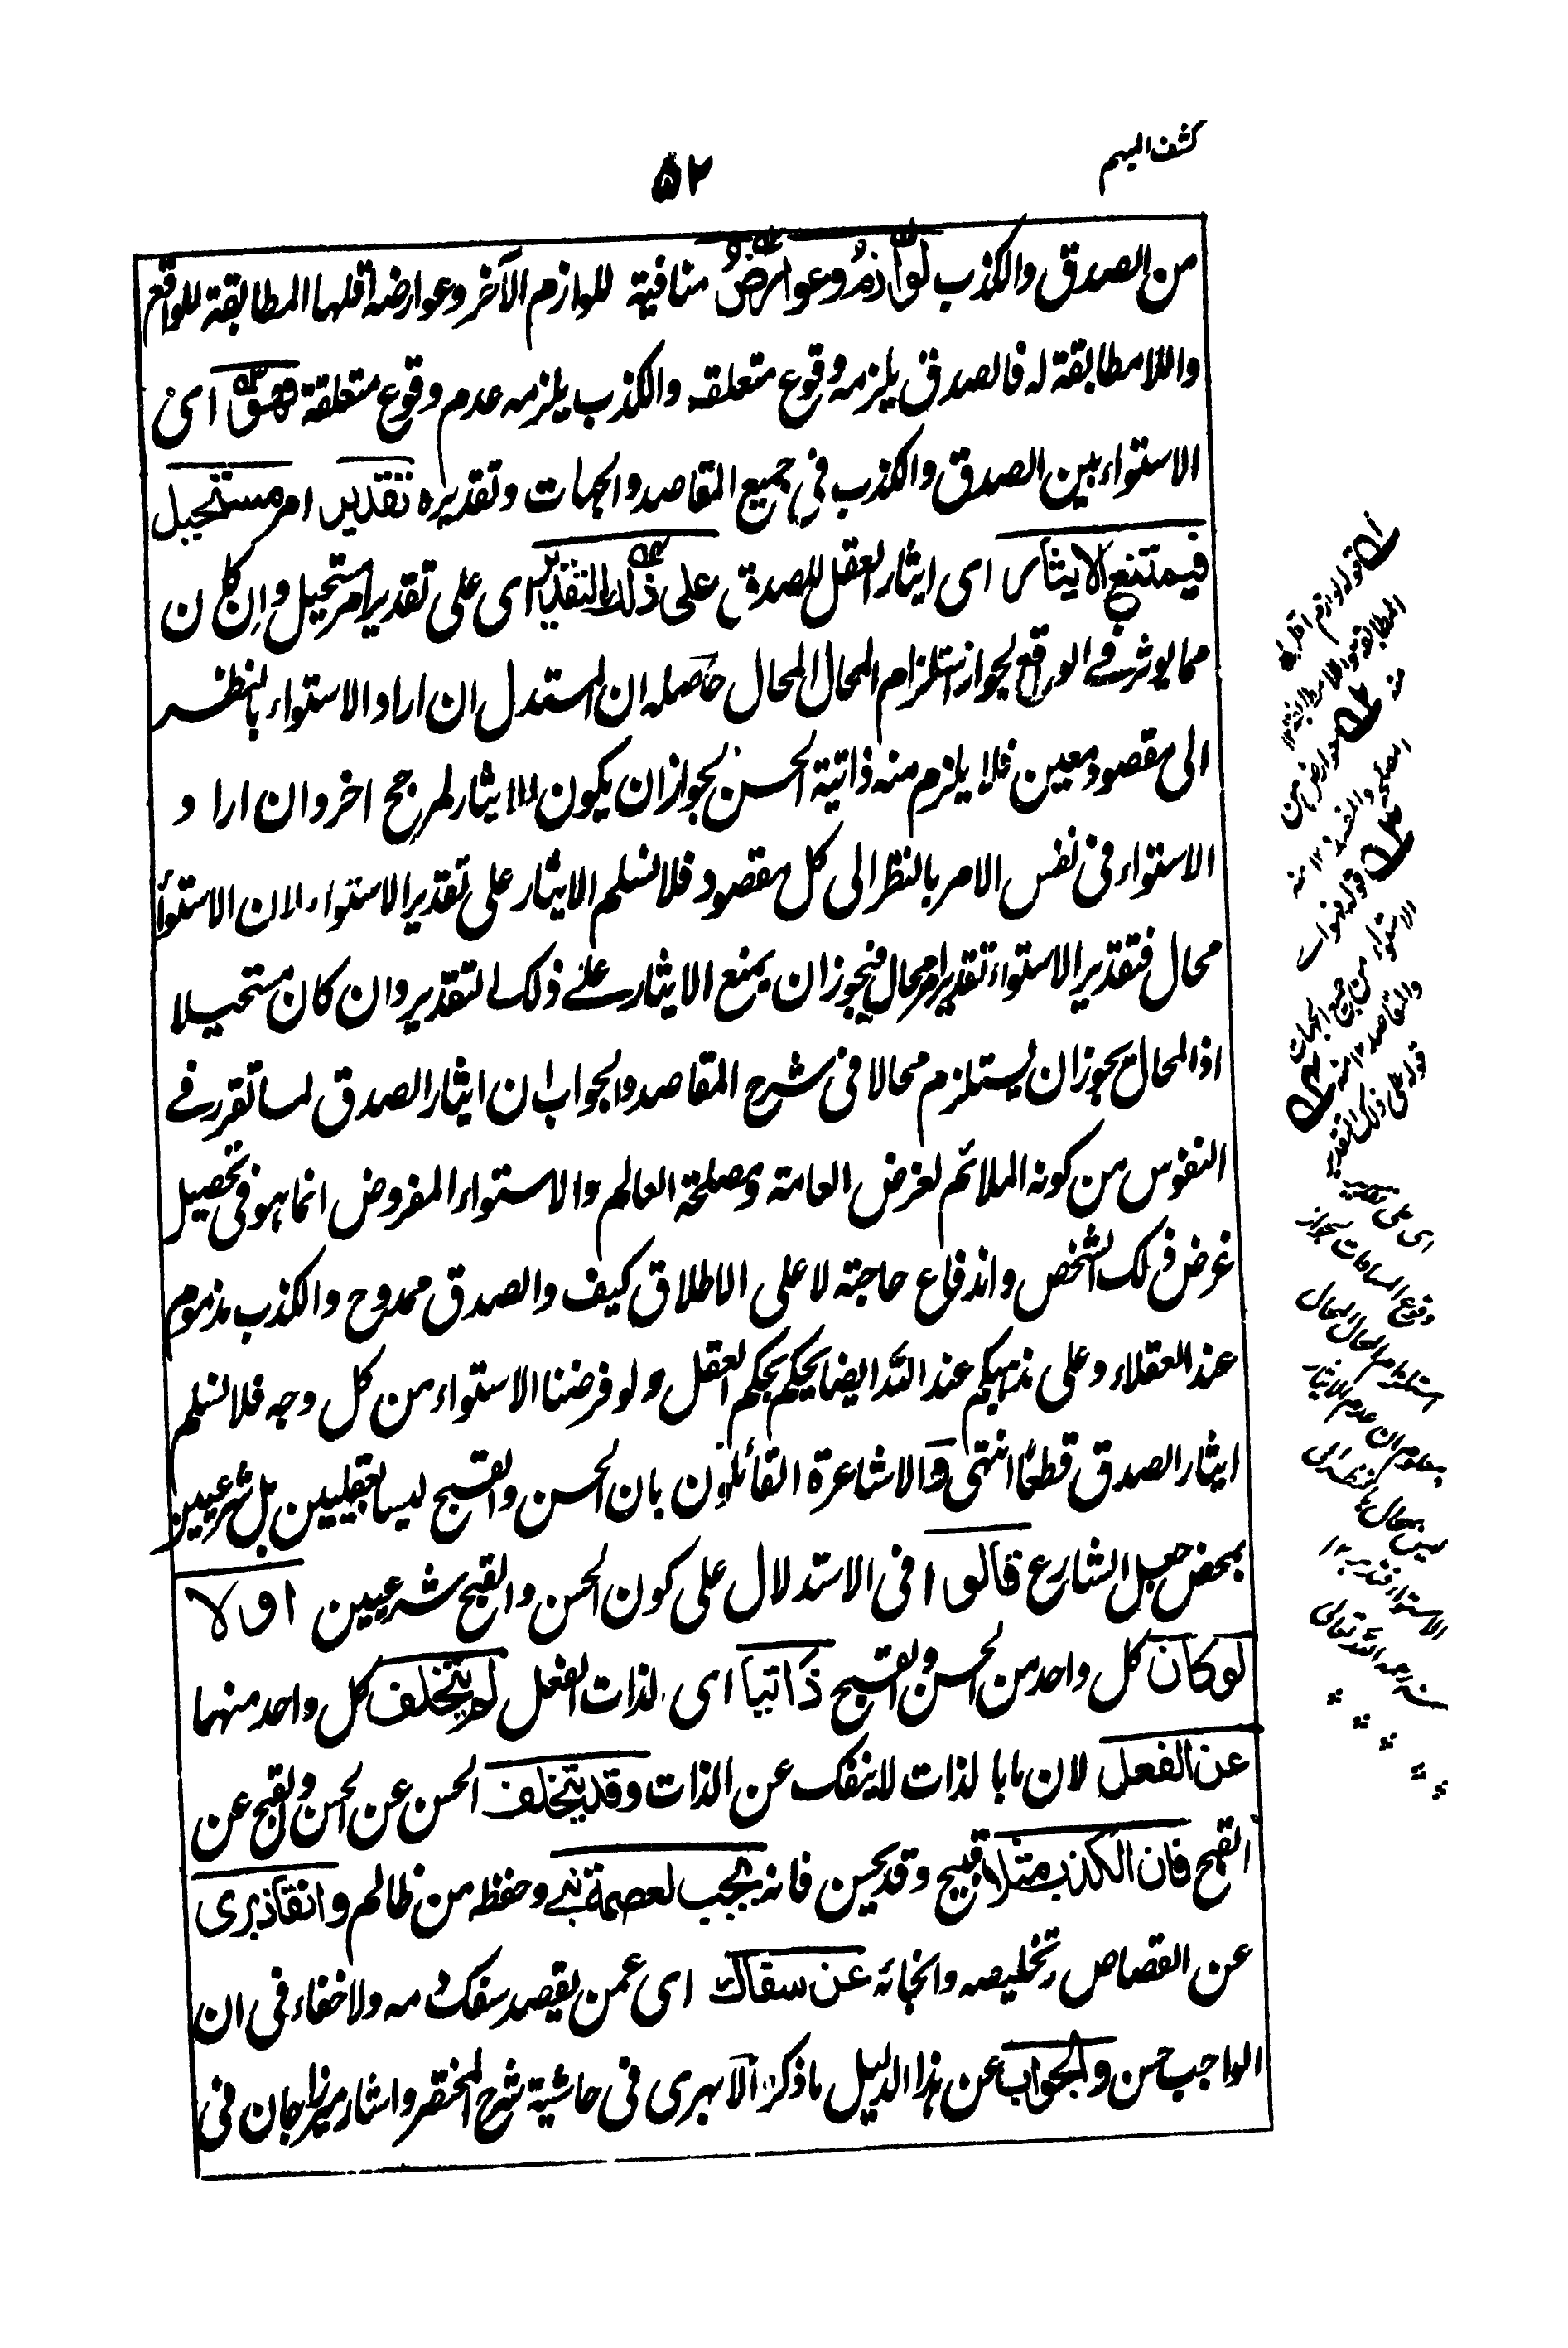 كشف المبهم
٥٢
من الصدق والكذب لوازم وعوارض منافية للوازم الآخر وعوارضه اقلها المطابقة للواقع
واللامطابقة له فالصدق يلزمه وقوع متعلقه والكذب يلزمه عدم وقوع متعلقة فهو اى
الاستواء بين الصدق والكذب فى جميع المقاصد والجهات وتقديره تقدير امر مستحيل
فيمتنع الايثار اى ايثار العقل للصدق على ذلك التقدير اى على تقدير امر مستحيل وان كان
مما يوثر فى الواقع لجواز استلزام المحال المحال حاصله ان المستدل ان اراد الاستواء بالنظر
الى مقصود معين فلا يلزم منه ذاتية الحسن لجواز ان يكون الايثار لمرجح اخر وان اراد
الاستواء فى نفس الامر بالنظر الى كل مقصود فلا نسلم الايثار على تقدير الاستواء لان الاستواء
محال فتقدير الاستواء تقدير امر محال فيجوز ان يمنع الايثار على ذلك التقدير وان كان مستحيلا
اذ المحال يجوز ان يستلزم محالا فى شرح المقاصد والجواب ان ايثار الصدق لما تقرر فى
النفوس من كونه الملائم لغرض العامة ومصلحة العالم والاستواء المفروض انما هو فى تحصيل
غرض ذلك الشخص واندفاع حاجته لا على الاطلاق كيف والصدق ممدوح والكذب مذموم
عند العقلاء وعلى مذهبكم عند الله ايضا يحكم بحكم العقل ولو فرضنا الاستواء من كل وجه فلا نسلم
ايثار الصدق قطعا انتهى والاشاعرة القائلون بان الحسن والقبح ليسا بعقليين بل شرعيين
بمحض جعل الشارع قالوا فى الاستدلال على كون الحسن والقبح شرعيين اولا
لو كان كل واحد من الحسن والقبح ذاتيا اى لذات الفعل لم يتخلف كل واحد منهما
عن الفعل لان ما بالذات لا ينفك عن الذات وقد يتخلف الحسن عن الحسن والقبح عن
القبح فان الكذب مثلا قبيح وقد يحسن فانه يجب لعصمة نبى وحفظه من ظالم وانقاذ برى
عن القصاص وتخليصه وانجائه عن سفاك اى عمن يقصد سفك دمه ولا خفاء فى ان
الواجب حسن والجواب عن هذا الدليل ما ذكره الابهرى فى حاشية شرح المختصر واشار ميرزا جان فى
قوله لوازم اقلها
المطابقة واللامطابقة ١٢
منه
عوارض من
المصلحة والمفسدة ١٢ منه
قوله فهو اى
الاستواء من جميع الجهات
والمقاصد ١٢ منه
قوله على ذلك التقدير
اى على تقدير
وقوع المساوات لجواز
استلزام المحال المحال
ومعلوم ان عدم الايثار
ليس بمحال بالنظر الى
الاستواء فتدبر ١٢
منه رحمه الله تعالى